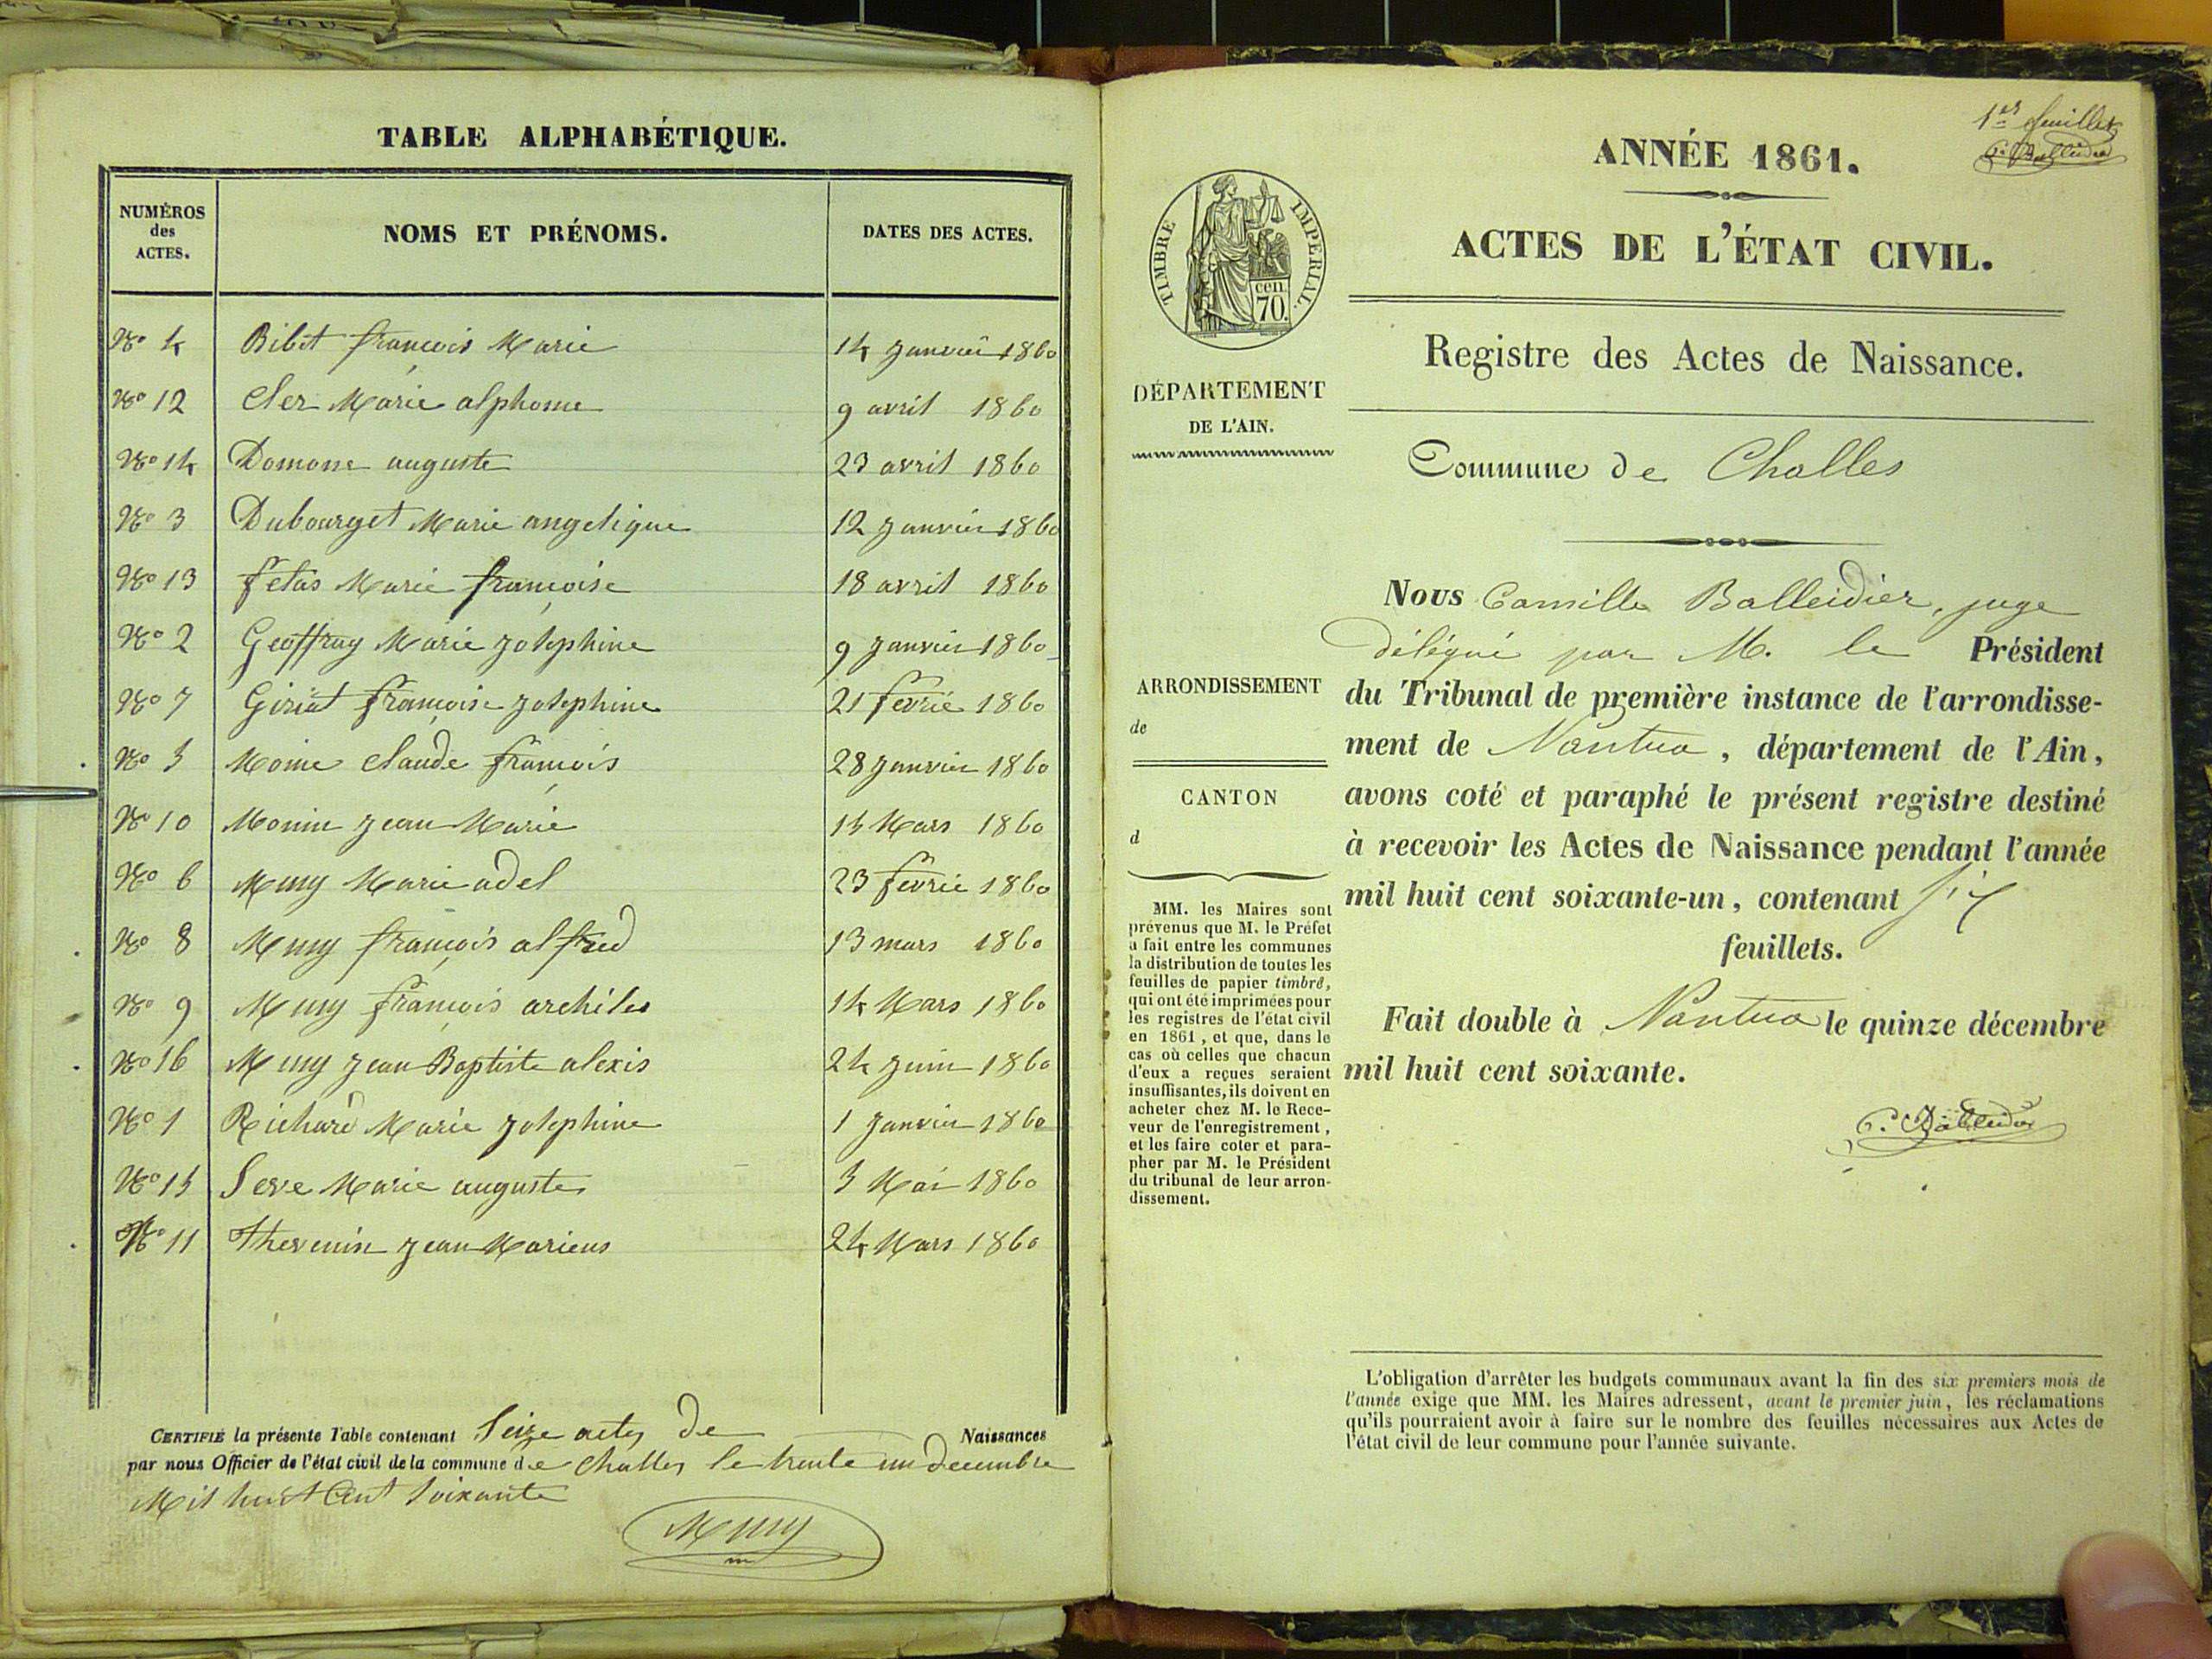 TABLE ALPHABÉTIQUE.
NUMÉROS des ACTES.
NOMS ET PRÉNOMS.
DATES DES ACTES.
No 4 Bibet françois Marie 14 Janvier 1860
No 12 Cler Marie alphonse 9 avril 1860
No 14 Domone auguste 23 avril 1860
No 3 Dubourget Marie angelique 12 Janvier 1860
No 13 felas Marie françoise 18 avril 1860
No 2 Geoffray Marie Josephine 9 Janvier 1860
No 7 Giriat françoise Josephine 21 fevrie 1860
No 5 Moine Claude françois 28 Janvier 1860
No 10 Monin Jean Marie 15 Mars 1860
No 6 Muny Marie adel 23 fevrie 1860
No 8 Muny françois alfred 13 mars 1860
No 9 Muny françois archiles 14 Mars 1860
No 16 Muny Jean Baptiste alexis 24 Juin 1860
No 1 Richard Marie Josephine 1 Janvier 1860
No 15 Seve Marie auguste 5 Mai 1860
No 11 thevenin Jean Marieus 24 Mars 1860
CERTIFIÉ la présente Table contenant Seize actes de Naissances
par nous Officier de l'état civil de la commune de Challes le trente un decembre
Mil huit Cent soixante
Muny
1er feuillet
C. Balleidier
ANNÉE 1861.
ACTES DE L'ÉTAT CIVIL.
Registre des Actes de Naissance.
TIMBRE IMPÉRIAL.
cen. 70.
DÉPARTEMENT
DE L'AIN.
Commune de Challes
ARRONDISSEMENT
de
CANTON
d
MM. les Maires sont
prévenus que M. le Préfet
a fait entre les communes
la distribution de toutes les
feuilles de papier timbré,
qui ont été imprimées pour
les registres de l'état civil
en 1861, et que, dans le
cas où celles que chacun
d'eux a reçues seraient
insuffisantes, ils doivent en
acheter chez M. le Rece-
veur de l'enregistrement,
et les faire coter et para-
pher par M. le Président
du tribunal de leur arron-
dissement.
Nous Camille Balleidier, juge
délégué par M. le Président
du Tribunal de première instance de l'arrondisse-
ment de Nantua, département de l'Ain,
avons coté et paraphé le présent registre destiné
à recevoir les Actes de Naissance pendant l'année
mil huit cent soixante-un, contenant six
feuillets.
Fait double à Nantua le quinze décembre
mil huit cent soixante.
C. Balleidier
L'obligation d'arrêter les budgets communaux avant la fin des six premiers mois de
l'année exige que MM. les Maires adressent, avant le premier juin, les réclamations
qu'ils pourraient avoir à faire sur le nombre des feuilles nécessaires aux Actes de
l'état civil de leur commune pour l'année suivante.